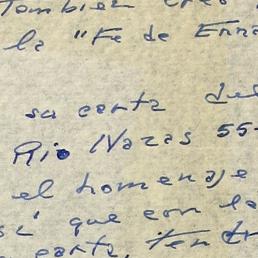 también
la "Fe de Erra
su carta del
Río Nazas 55-
el homenaje
que con la
carta, ten